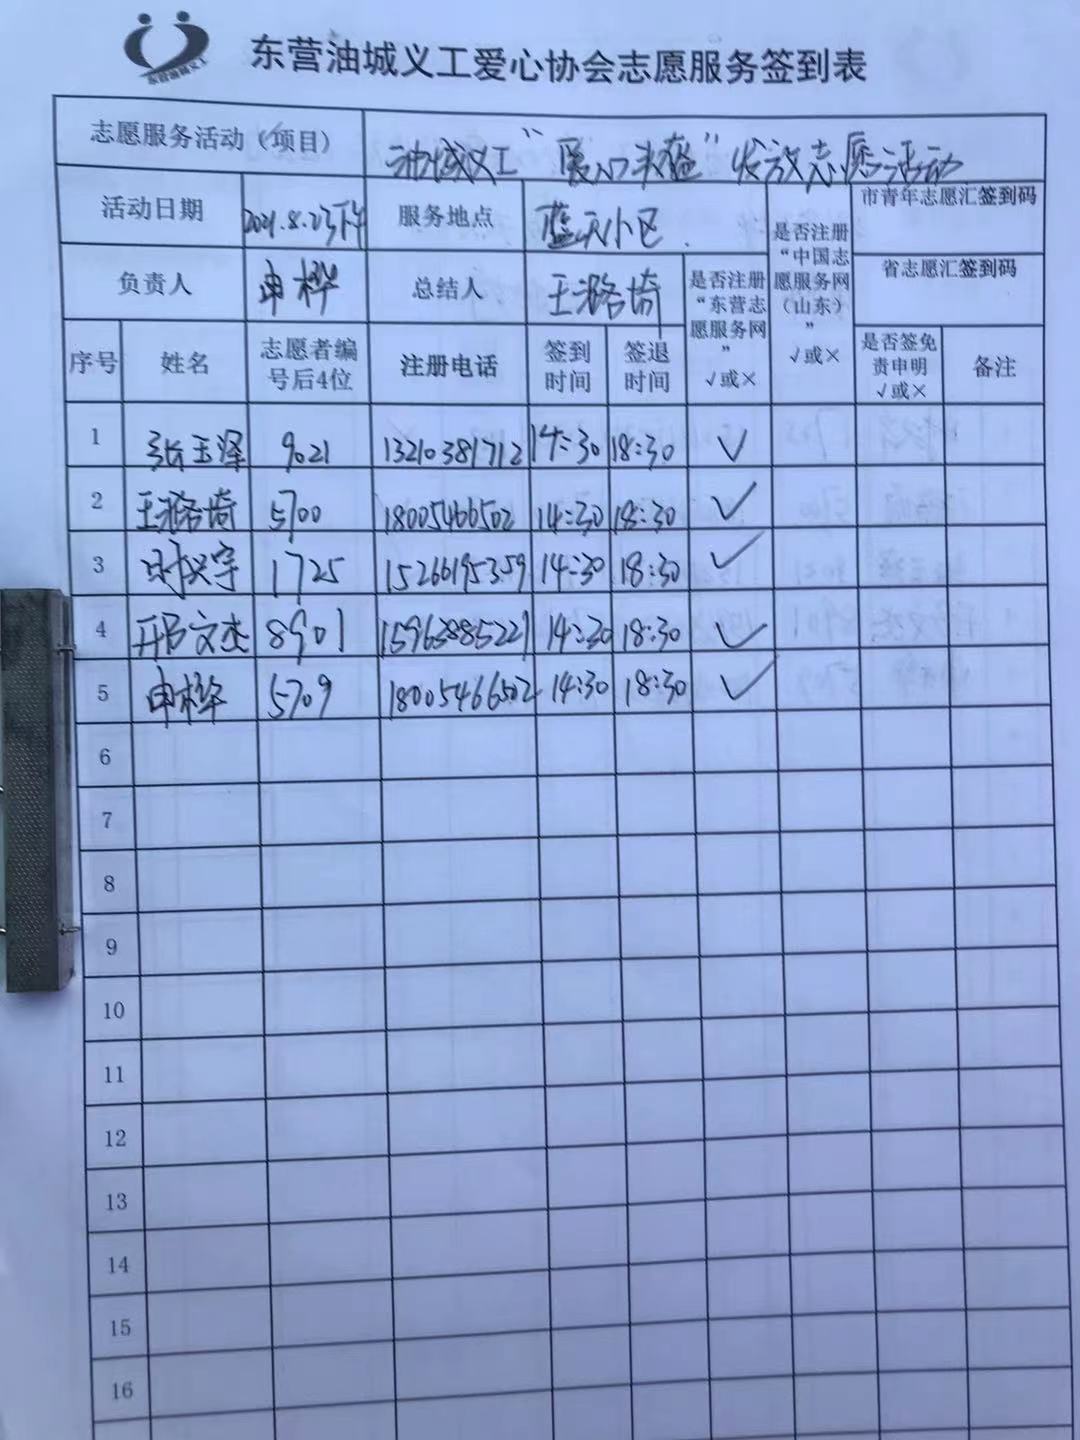 东营油城义工
东营油城义工爱心协会志愿服务签到表
志愿服务活动（项目） 油城义工“爱心头盔”发放志愿活动
活动日期 2021.8.23下午 服务地点 蓝天小区 市青年志愿汇签到码
负责人 申桦 总结人 王潞琦 是否注册“东营志愿服务网” √或× 是否注册“中国志愿服务网（山东）” √或× 省志愿汇签到码
序号 姓名 志愿者编号后4位 注册电话 签到时间 签退时间 是否签免责申明 √或× 备注
1 张玉泽 9021 13210381712 14:30 18:30 ✓
2 王潞琦 5700 18005466502 14:30 18:30 ✓
3 时兴宇 1725 15266195359 14:30 18:30 ✓
4 邢文杰 8901 15963885221 14:30 18:30 ✓
5 申桦 5709 18005466502 14:30 18:30 ✓
6
7
8
9
10
11
12
13
14
15
16